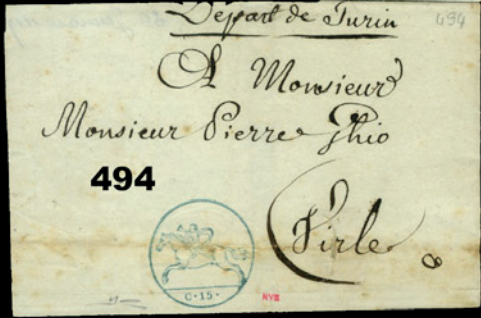 Départ de Turin
494
A Monsieur
Monsieur Pierre Ghio
494
Virle
C·15·